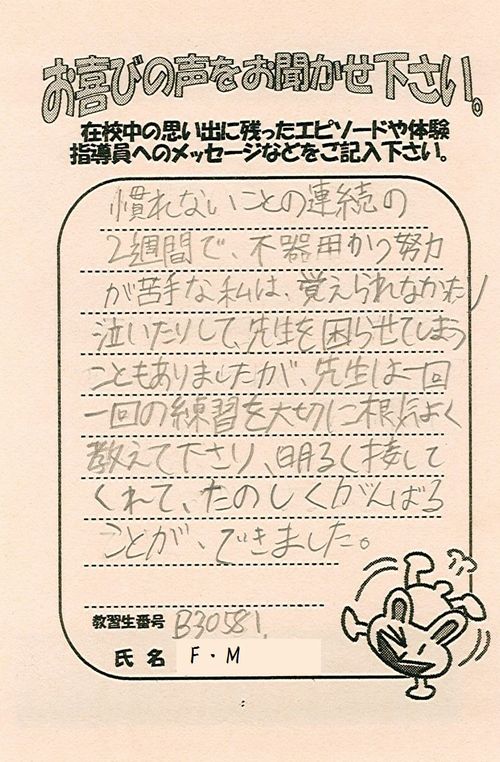 お喜びの声をお聞かせ下さい。
在校中の思い出に残ったエピソードや体験
指導員へのメッセージなどをご記入下さい。
慣れないことの連続の
2週間で、不器用かつ努力
が苦手な私は、覚えられなかったり
泣いたりして、先生を困らせてしまう
こともありましたが、先生は一回
一回の練習を大切に根気よく
教えて下さり、明るく接して
くれて、たのしくがんばる
ことが、できました。
教習生番号 B30581
氏名 F・M